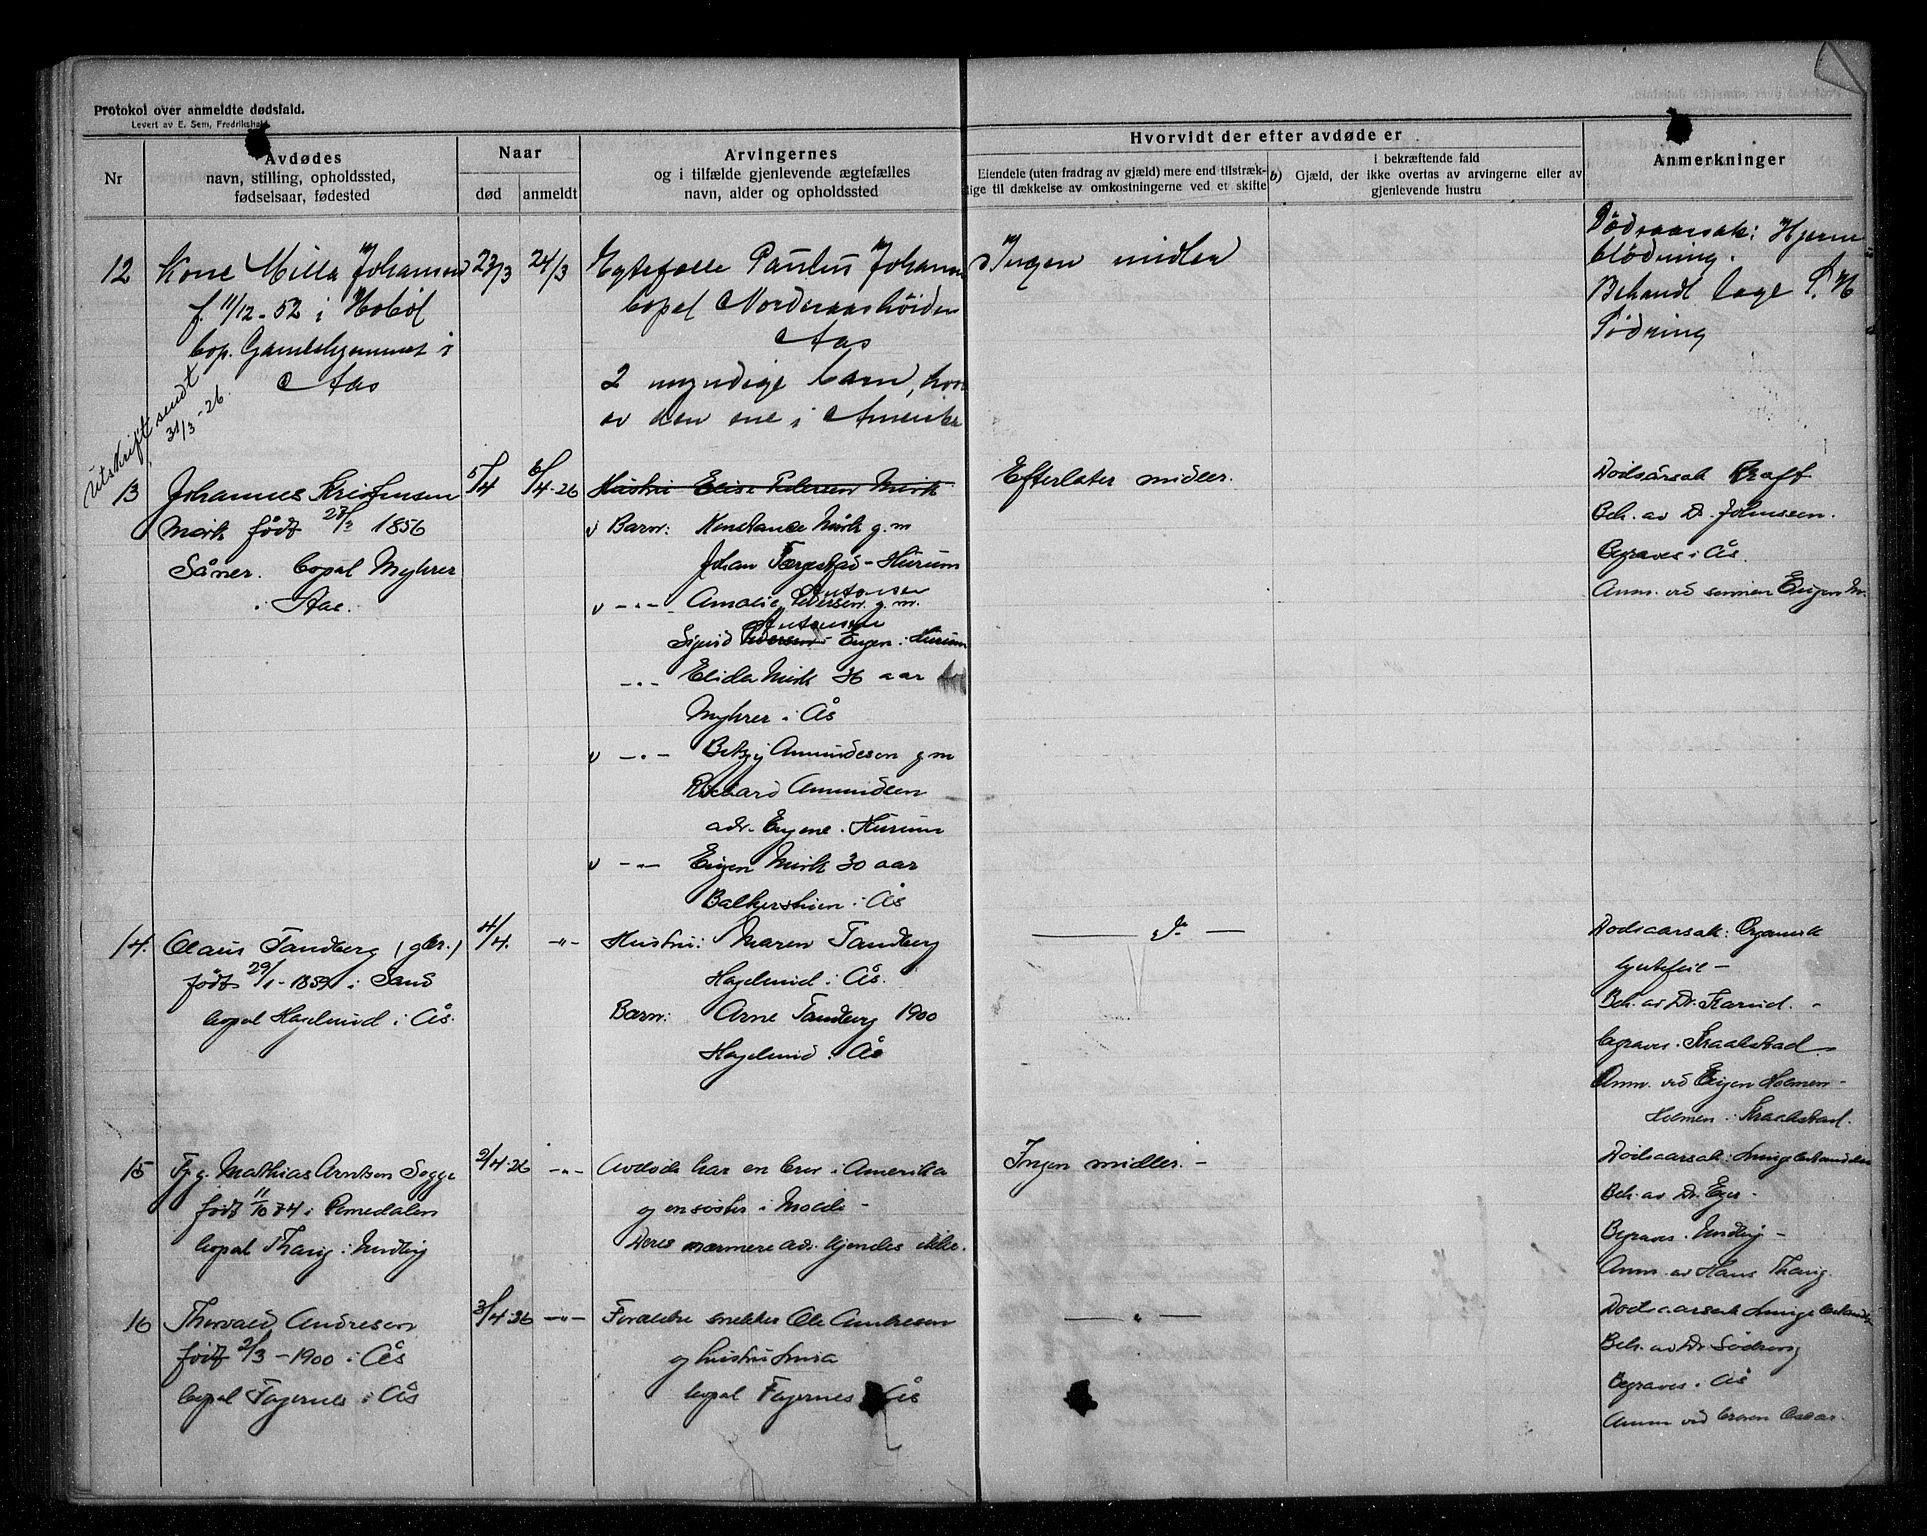 Protokol over anmeldte dødsfald.
Levert av E. Sem, Fredrikshald.
Nr
Avdødes
navn, stilling, opholdssted,
fødselsaar, fødested
Naar
død
anmeldt
Arvingernes
og i tilfælde gjenlevende ægtefælles
navn, alder og opholdssted
Hvorvidt der efter avdøde er
Eiendele (uten fradrag av gjæld) mere end tilstræk-
lige til dækkelse av omkostningerne ved et skifte
b)
i bekræftende fald
Gjæld, der ikke overtas av arvingerne eller av
gjenlevende hustru
Anmerkninger
12
Kone Milla Johansen
f. 11/12-52 i Hobøl
bop. Gamlehjemmet i
Aas
Utskrift sendt
31/3-26.
23/3
24/3
Egtefælle Paulus Johans
bopel Nordraashøiden
Aas
2 myndige barn, hvor
av den ene i Amerika
Ingen midler
Dødsaarsak: Hjerne
blødning.
Behandl. læge
Sødring
13
Johannes Kristensen
Mørk født 27/3 1856
Såner. bopæl Myhrer
i Aas.
5/4
6/4-26
Hustru Elise Petersen Mørk
v Barn: Konstance Mørk g.m
Johan Færgestad - Hurum
v -"- Amalie Pedersen g.m. Antonsen
Sigurd Pedersen Antonsen Ergen i Hurum
-"- Elida Mørk 36 aar
Myhrer i Ås
v -"- Betzy Amundsen g m
Richard Amundsen
adr. Hurum
v -"- Eugen Mørk 30 aar
i Ås
Efterlater midler.
Dødsårsak Kræft
Beh. av Dr. Johnssen.
Begraves i Ås.
Anm. ved sønnen Eugen M.
14.
Claus Tandberg (gbr.)
født 29/1-1859 i Sand
bopæl Hagelund i Ås.
4/4.
-"-
Hustru: Maren Tandberg
Hagelund i Ås.
Barn: Arne Tandberg 1900
Hagelund i Ås
— do —
Dødsaarsak: Organisk
hjertefeil -
Beh. av Dr.
begraves. Kraakstad.
Anm. ved Eugen Holmen -
Holmen i Kraakstad.
15
Fg. Mathias Arntsen Sogge
født 11/10 74 i Romsdalen
bopæl Thaug i Nordby
2/4-26
-"-
Avdøde har en bror i Amerika
og en søster i Molde -
Deres nærmere adr. kjendes ikke.
Ingen midler. -
Dødsaarsak: Lungebetændelse
Beh. av Dr. Eger -
Begraves. Nordby -
Anm. av Hans Thaug.
16
Thorvald Andresen
født 2/3-1900 i Ås
bopæl Fagernes i Ås
3/4-26
-"-
Forældre snekker Ole Andresen
og hustru
bopæl Fagernes Ås
— " —
Dødsaarsak Lungebetændelse
Beh. av Dr Sødring
Begraves i Ås
Anm ved broren Oscar